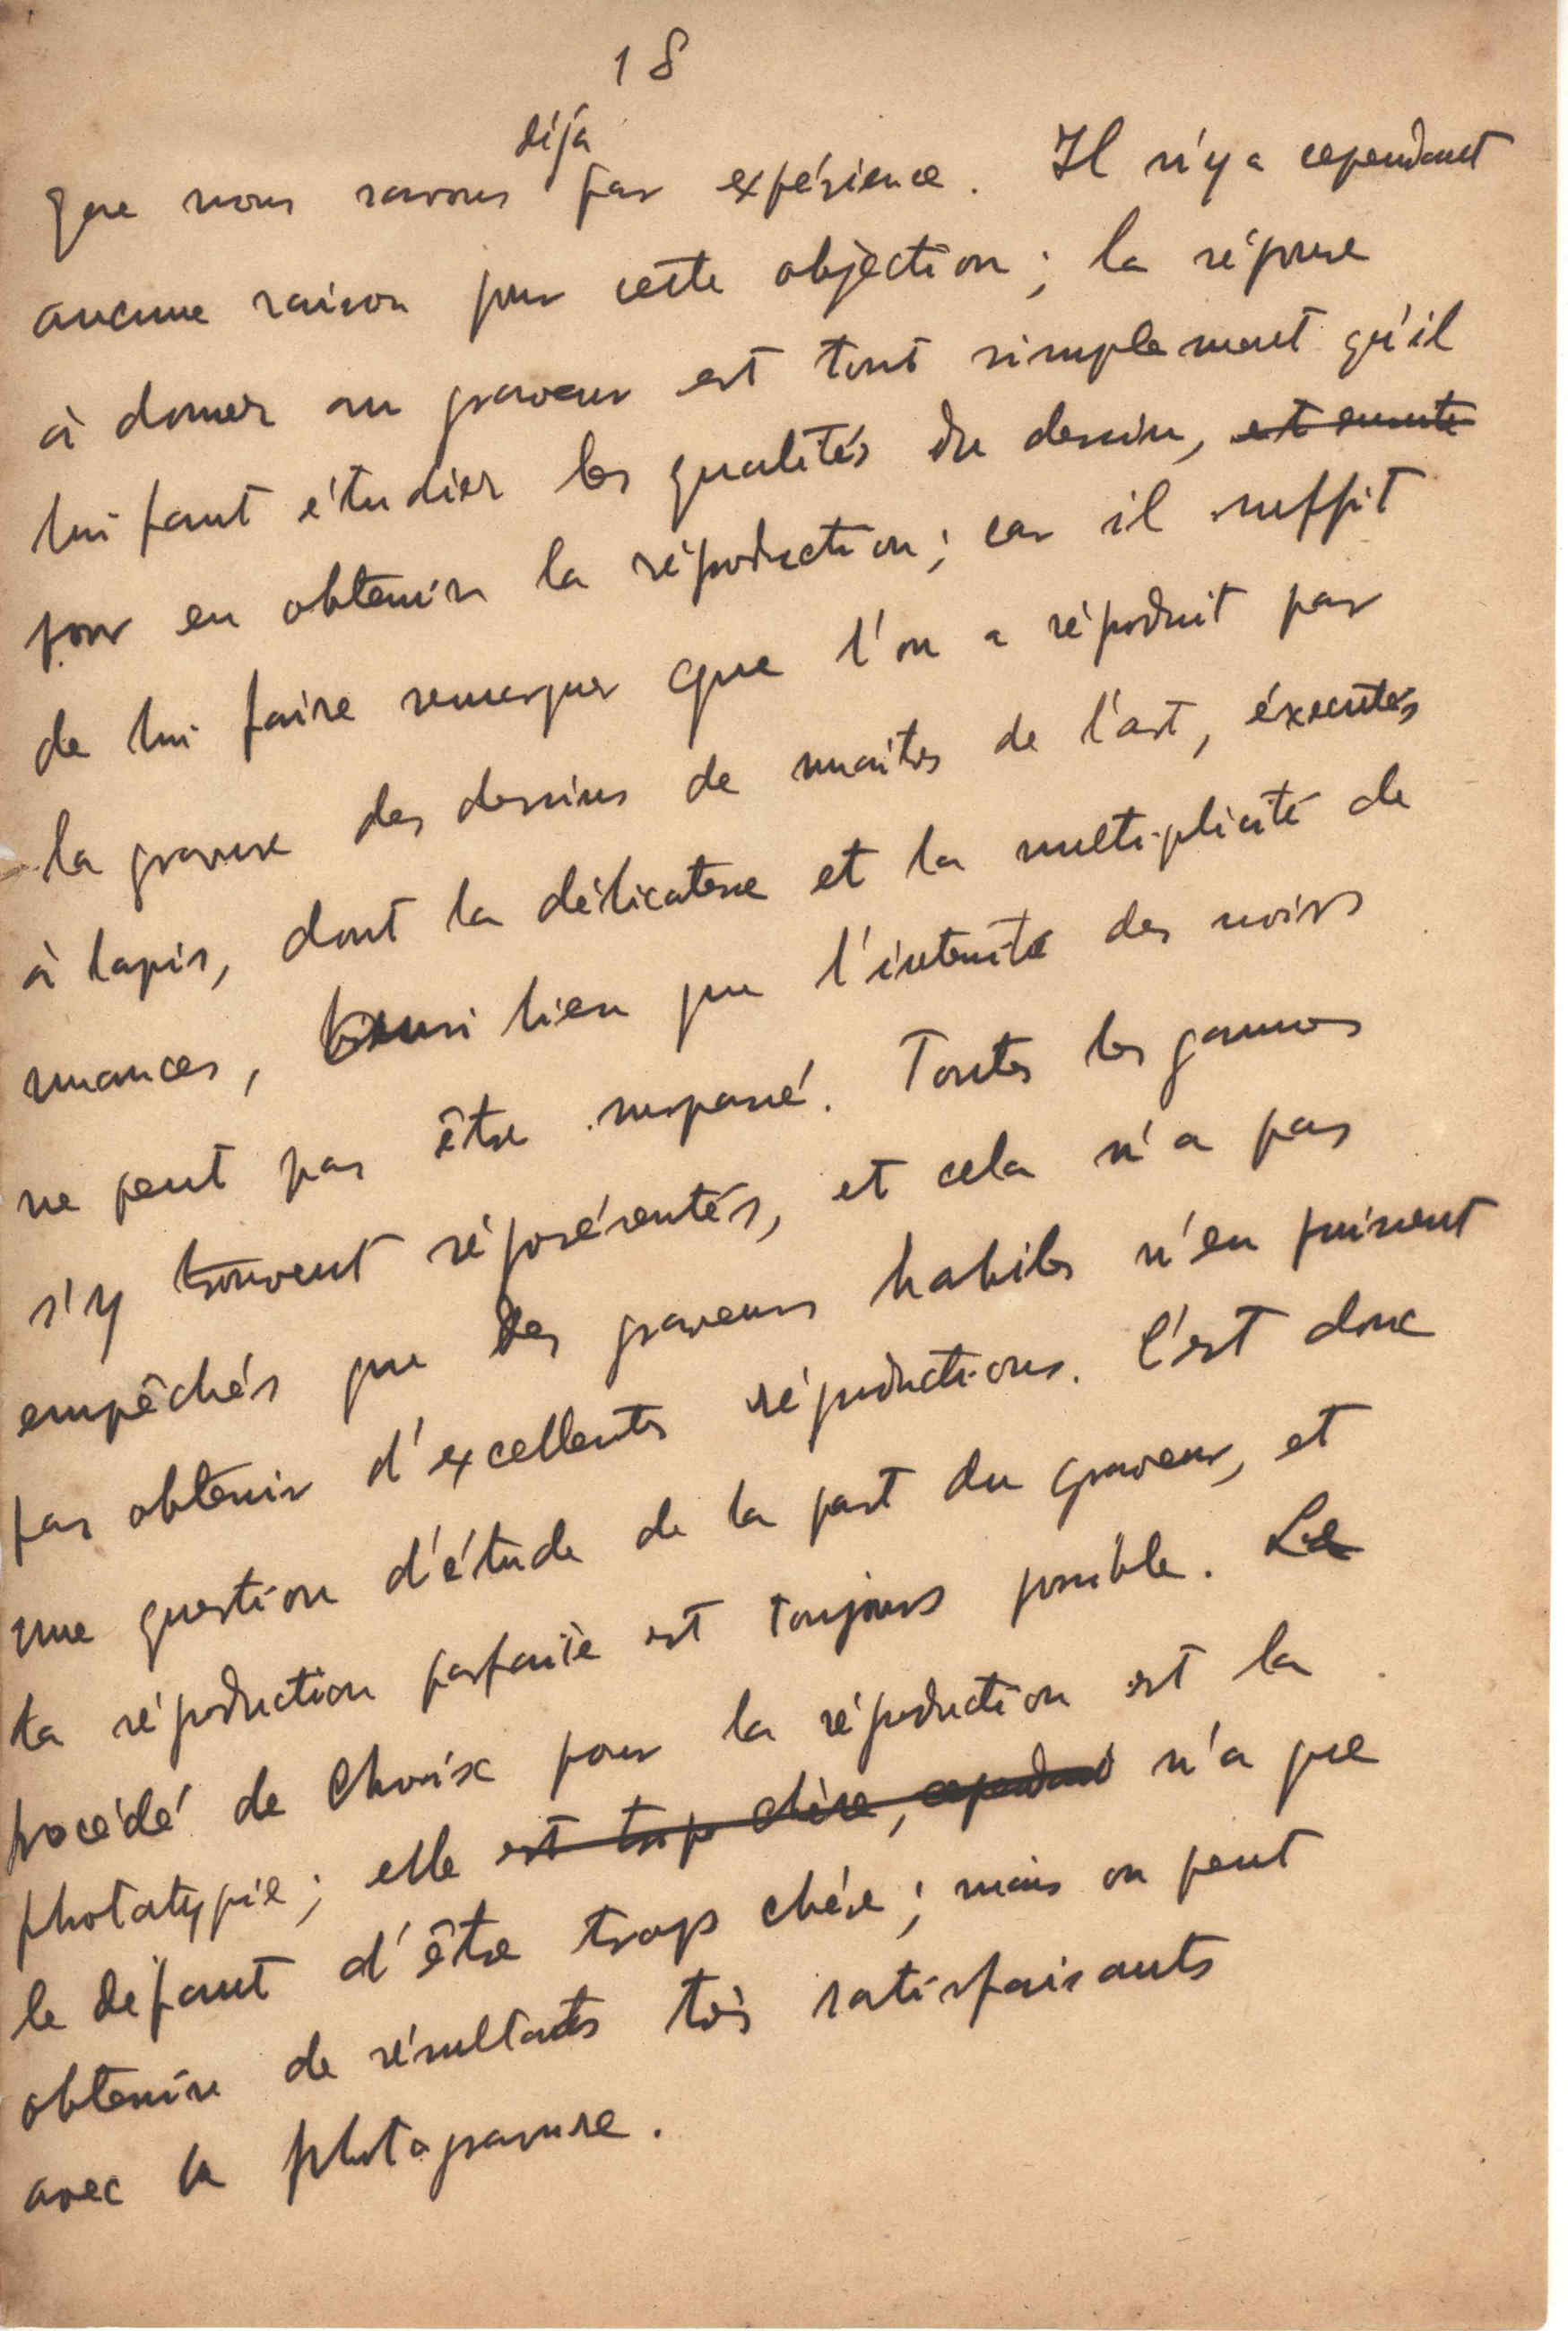 18
déjà
que nous savons par expérience. Il n'y a cependant
aucune raison pour cette objection; la réponse
à donner au graveur est tout simplement qu'il
lui faut étudier les qualités du dessin, et ensuite
pour en obtenir la réproduction; car il suffit
de lui faire remarquer que l'on a réproduit par
la gravure des dessins de maitres de l'art, éxecutés
à lapis, dont la délicatesse et la multiplicité de
nuances, aussi bien que l'intensité des noirs
ne peut pas être surpassé. Toutes les gammes
s'y trouvent réprésentés, et cela n'a pas
empêchés que des graveurs habiles n'en puissent
pas obtenir d'excellentes réproductions. C'est donc
une question d'étude de la part du graveur, et
la réproduction parfaite est toujours possible. Le
procédé de choix pour la réproduction est la
photatypie; elle est trop chère, cependant n'a que
le défaut d'être trop chère; mais on peut
obtenir de résultats très satisfaisants
avec la photogravure.